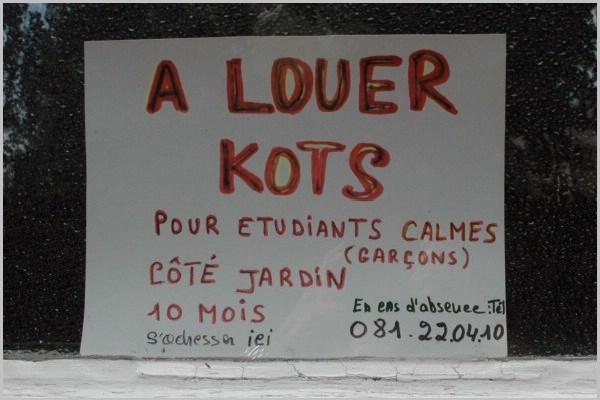 A LOUER
KOTS
POUR ETUDIANTS CALMES
(GARÇONS)
CÔTÉ JARDIN
10 MOIS
En cas d'absence : Tél
S'adresser ici
081.22.04.10